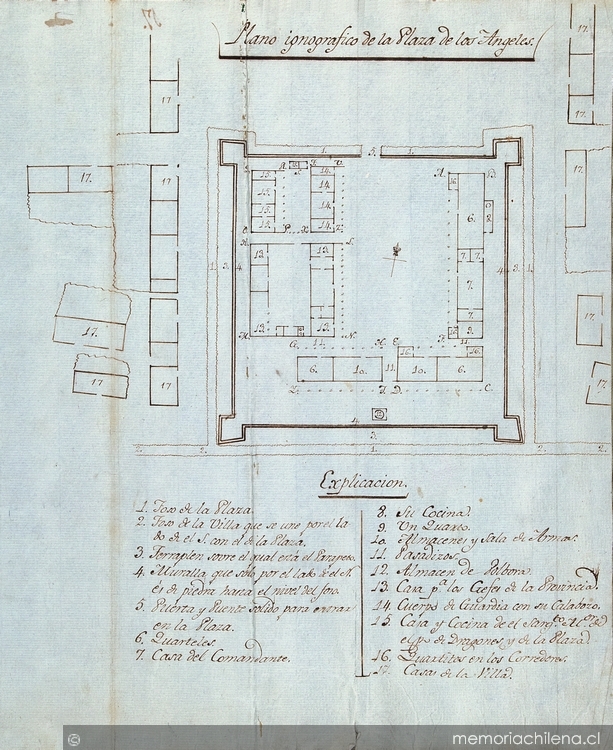 Plano ignografico de la Plaza de los Angeles.
Explicacion.
1. Foso de la Plaza.
2. Foso de la Villa que se une por el la
do de el S. con el de la Plaza.
3. Terraplen sobre el qual está el Parapeto.
4. Muralla, que solo por el lado de el N.
és de piedra hasta el nivel del foso.
5. Puerta y Puente solido, para entrar
en la Plaza.
6. Quarteles
7. Casa del Comandante.
8. Su Cocina.
9. Un Quarto.
10. Almacenes y Sala de Armas.
11. Pasadizos.
12. Almacen de Polbora.
13. Casa pª los Gefes de la Provincia.
14. Cuerpo de Guardia con su Calabozo.
15. Casa y Cocina de el Sargto
de Dragones, y de la Plaza.
16. Quartitos en los Corredores.
17. Casas de la Villa.
© memoriachilena.cl